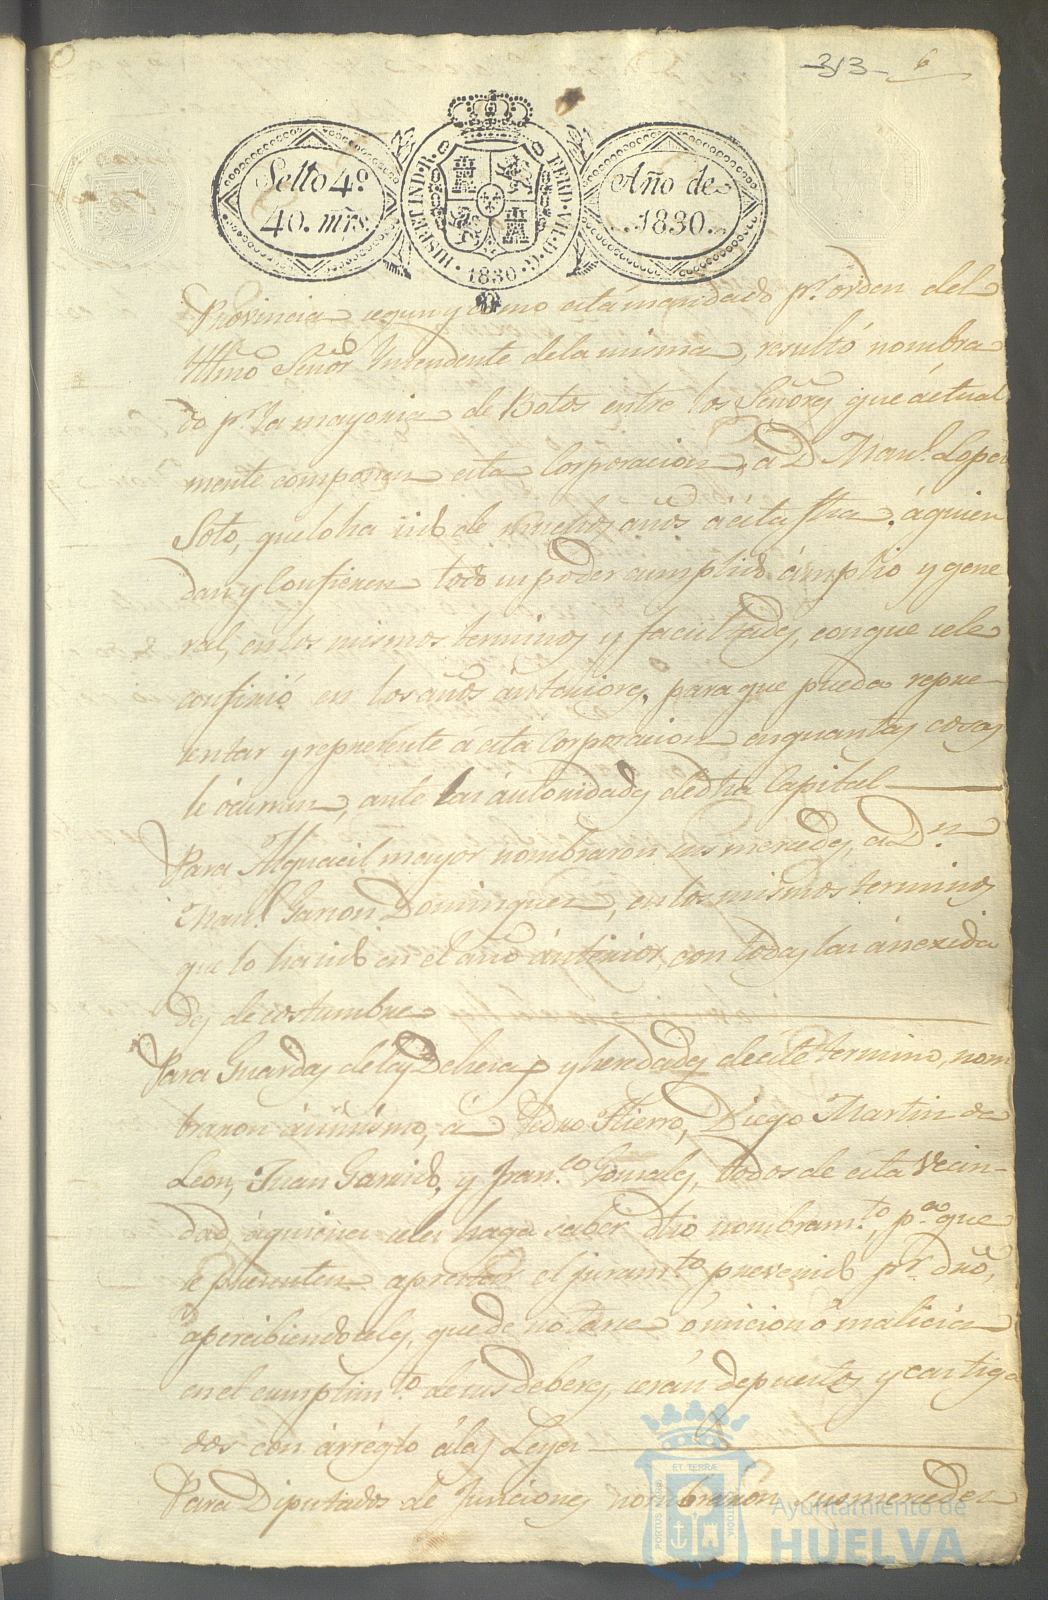 313 6
Sello 4º
40. mrs.
HISP. ET IND. R. FERD. VII. D. G. 1830
Año de
1830.
Provincia segun y como esta mandado pr. orden del
Yltmo Señor Yntendente dela misma, resultó nombra
do pr. la mayoria de Botos entre los Señores que áctual
mente componen esta Corporacion, a D Man.l Lopez
Soto, que lo ha sido de muchos años á esta fha. á quien
dan y confieren todo su poder cumplido ámplio y gene
ral, en los mismos terminos y facultades, con que sele
confirió en los años ánteriores, para que pueda repre-
sentar y represente á esta Corporacion en quantas cosas
le ócurran, ante las áutoridades de dha Capital
Para Alguacil mayor nombraron sus mercedes, a Dn
Man.l Garzon Dominguez, en los mismos terminos
que lo ha sido en el año ánterior, con todas las ánexida
des de costumbre
Para Guardas de las Dehesas y heredades de éste termino, nom
braron ásimismo, á Pedro Hierro, Diego Martin de
Leon, Juan Garrido, y Fran.co Gonzales, todos de esta Vecin-
dad, á quienes seles haga saber dho nombram.to, pa. que
se presenten a prestar el juram.to prevenido pr. dro,
apercibiendoseles, que de notarse ómision ó malicia
en el cumplim.to de sus deberes, serán depuestos y castiga
dos con árreglo á las Leyes
Para Diputados de Funciones nombraron sus mercedes
ET TERRÆ
PORTUS
CUSTODIA
Ayuntamiento de
HUELVA